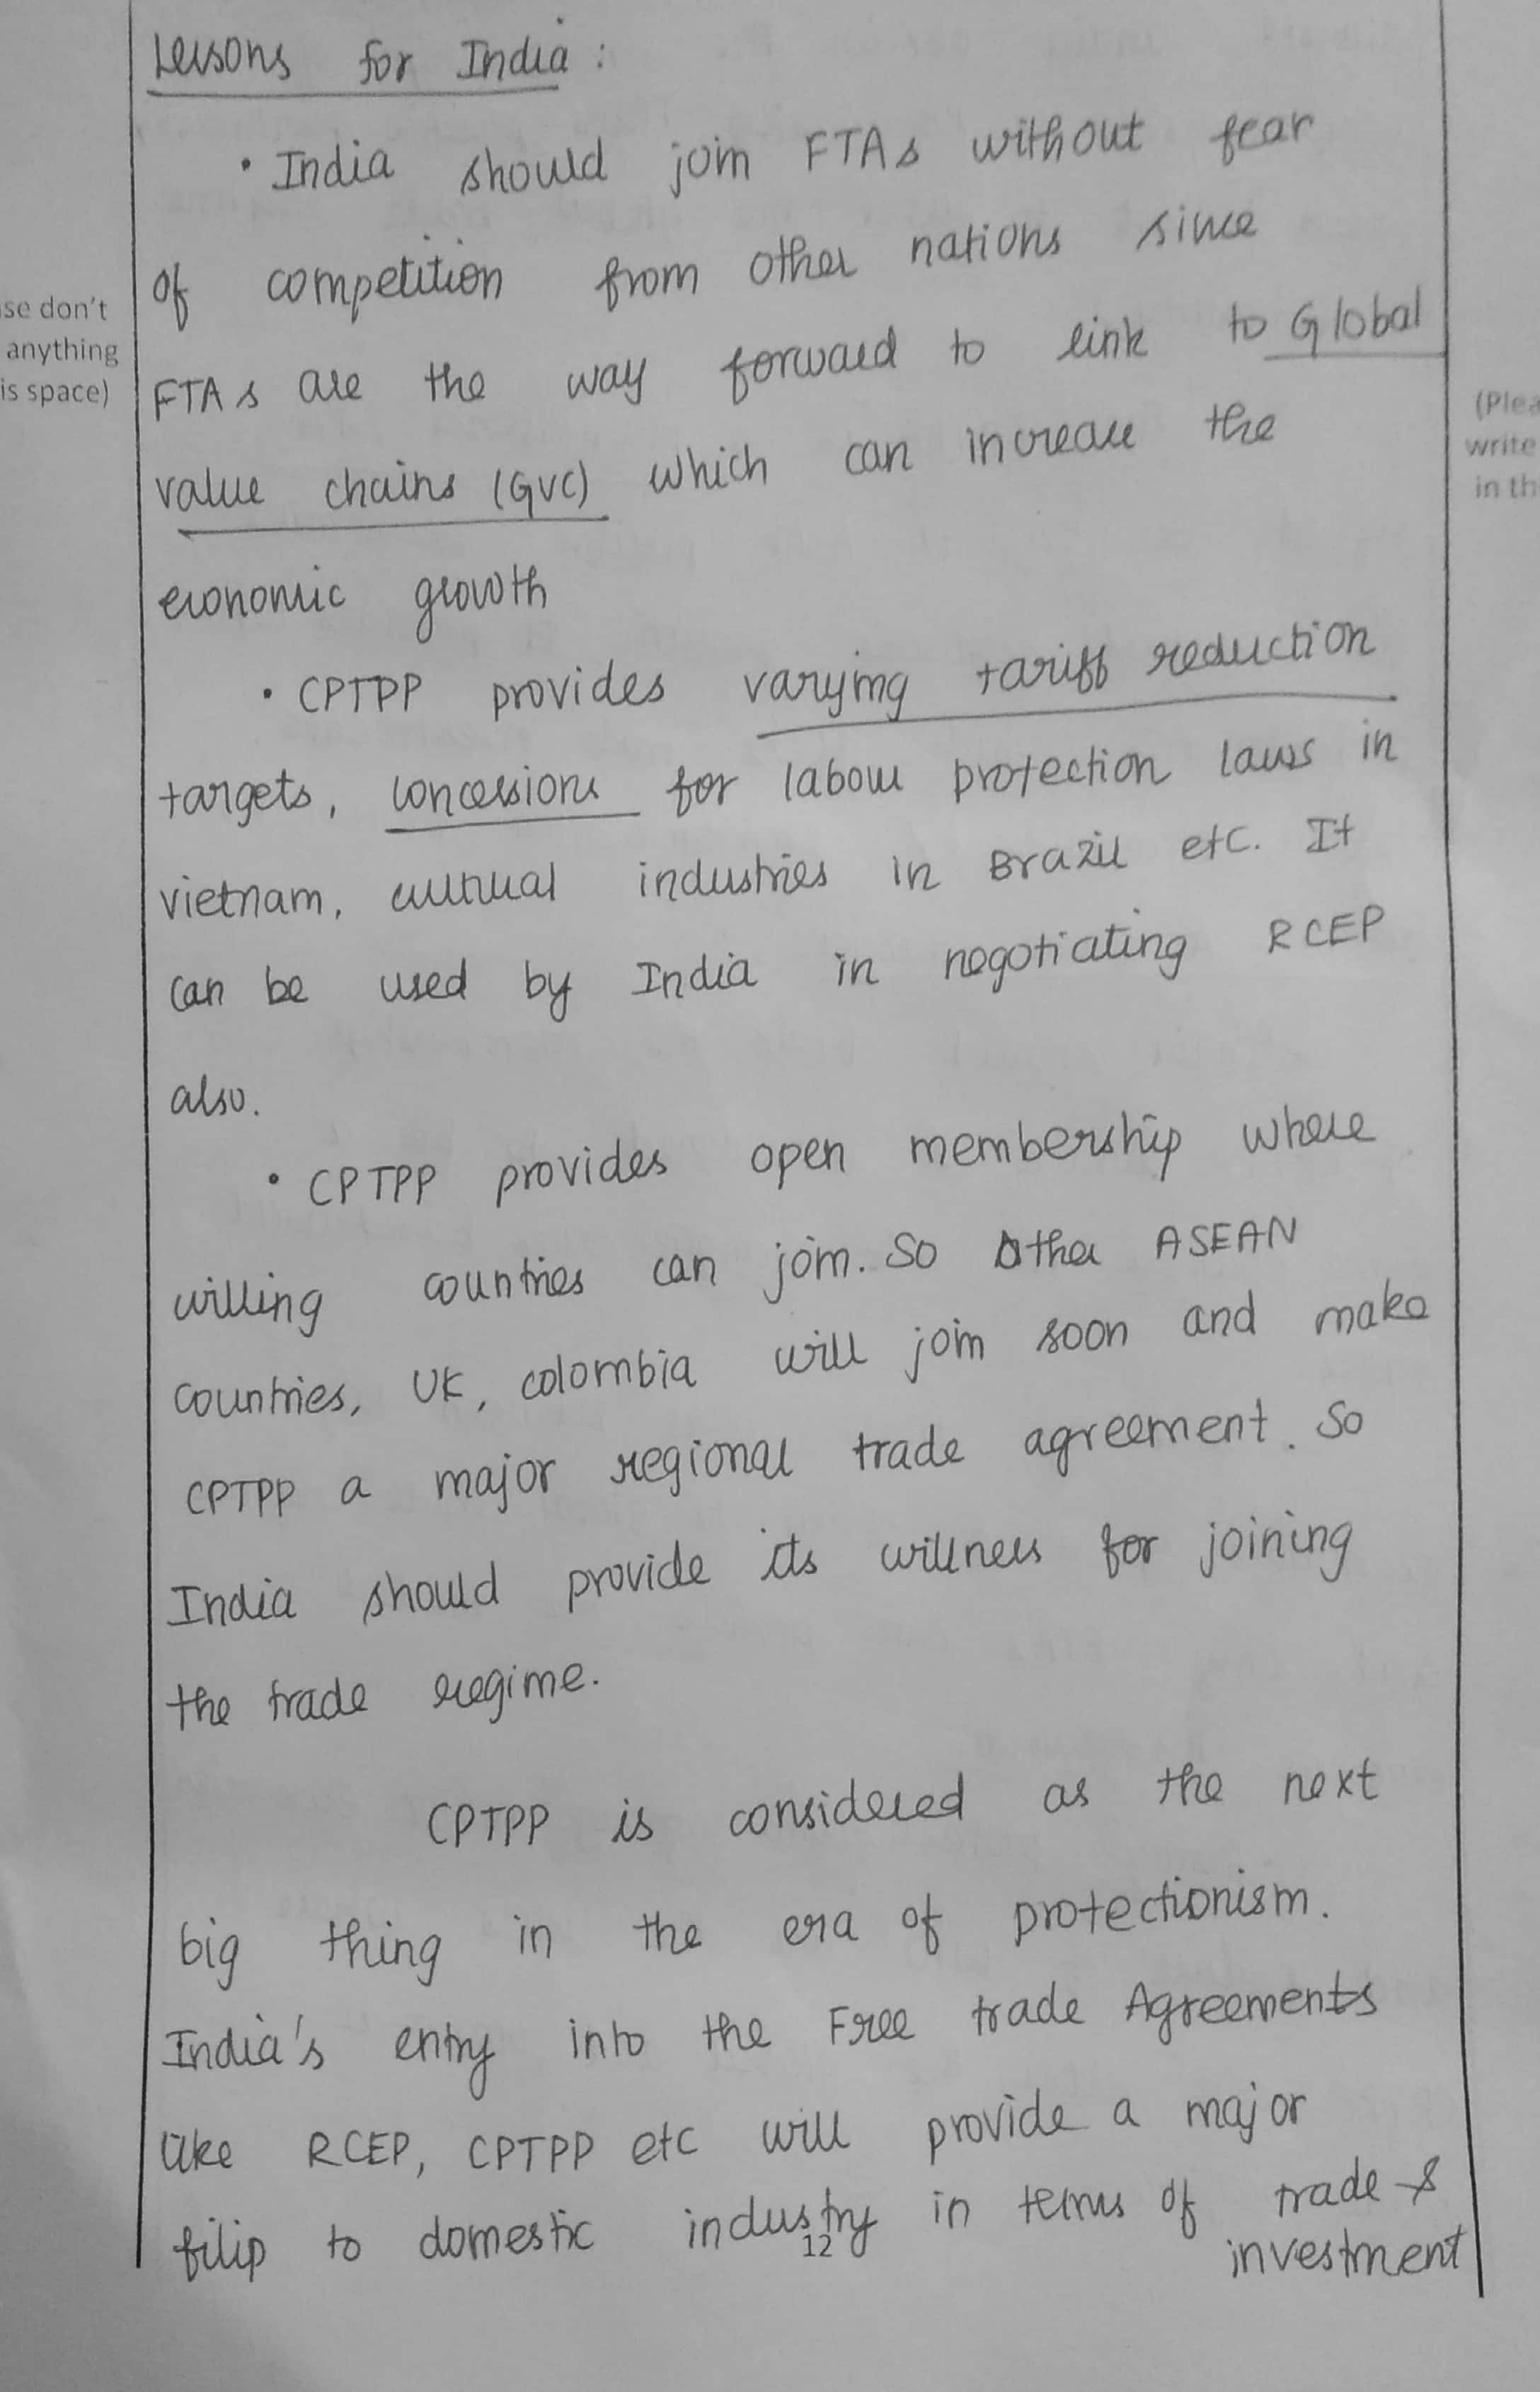 Lessons for India :
• India should join FTAs without fear
of competition from other nations since
FTAs are the way forward to link to Global
value chains (GVC) which can increase the
economic growth
• CPTPP provides varying tariff reduction
targets, concessions for labour protection laws in
vietnam, cultural industries in Brazil etc. It
can be used by India in negotiating RCEP
also.
• CPTPP provides open membership where
willing countries can join. So other ASEAN
countries, UK, colombia will join soon and make
CPTPP a major regional trade agreement. So
India should provide its willness for joining
the trade regime.
CPTPP is considered as the next
big thing in the era of protectionism.
India's entry into the Free trade Agreements
like RCEP, CPTPP etc will provide a major
filip to domestic industry in terms of trade &
investment
12
se don't
anything
is space)
(Plea
write
in th